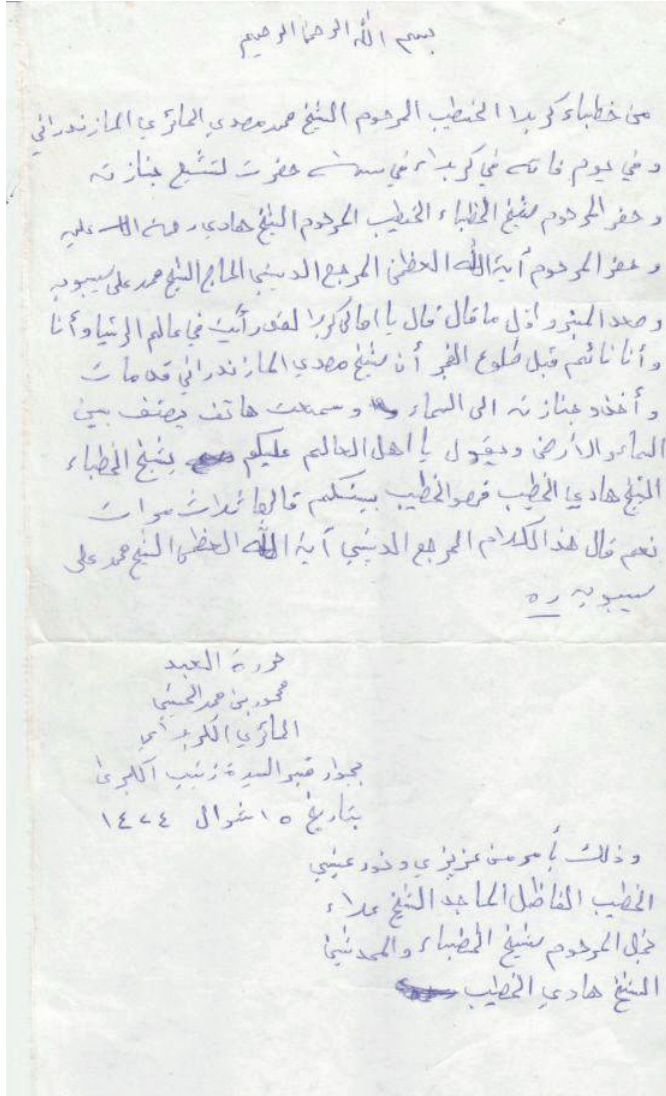 بسم الله الرحمن الرحيم
من خطباء كربلا الخطيب المرحوم الشيخ محمد مهدي الحائري المازندراني
و في يوم فاته في كربلاء في سنة حضرت لتشيع جنازته
و حضر المرحوم شيخ الخطباء الخطيب المرحوم الشيخ هادي رحمة الله عليه
و حضر المرحوم آية الله العظمى المرجع الديني الحاج الشيخ محمد علي سيبويه
و صعد المنبر و اول ما قال قال يا اهالي كربلا لقد رأيت في عالم الرؤيا و أنا
و أنا نائم قبل طلوع الفجر أن شيخ مهدي المازندراني قد مات
و أخذو جنازته الى السماء و سمعت هاتف يهتف بين
السماء و الارض و يقول يا اهل العالم عليكم بشيخ الخطباء
الشيخ هادي الخطيب فهو الخطيب بينكم قالها ثلاث مرات
نعم قال هذ الكلام المرجع الديني آية الله العظمى الشيخ محمد علي
سيبويه ره
حررة العبد
محمود بن محمد الحسيني
الحائري الكربلائي
بجوار قبر السيدة زينب الكبرى
بتاريخ ١٥ شوال ١٤٢٤
و ذلك بأمر من عزيزي و نور عيني
الخطيب الفاظل الماجد الشيخ علاء
نجل المرحوم شيخ الخطباء والمحدثين
الشيخ هادي الخطيب